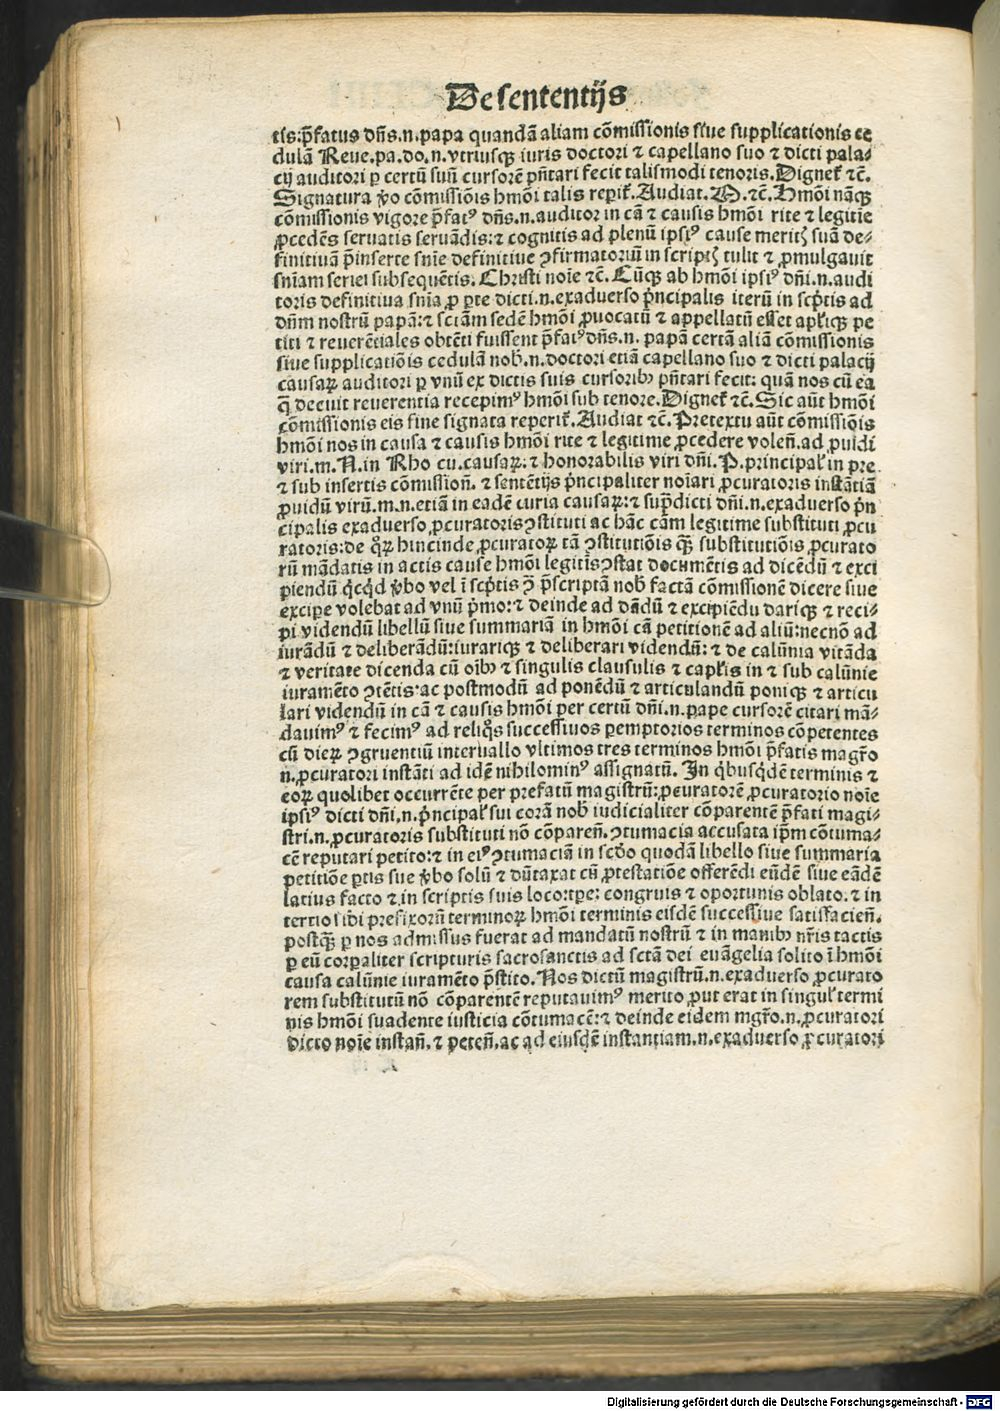 De sententijs
tis:p̄fatus dn̄s.n.papa quandā aliam cōmissionis siue supplicationis ce
dulā Reue.pa.do.n.vtriusqꝫ iuris doctori ⁊ capellano suo ⁊ dicti pala-
cij auditori ꝑ certū suū cursorē pn̄tari fecit talismodi tenoris.Dignet̉ ⁊c̄.
Signatura ꝟo cōmissiōis hmōi talis reperit̉.Audiat. ⁊c̄.Hmōi nāqꝫ
cōmissionis vigore p̄fatꝰ dn̄s.n.auditor in cā ⁊ causis hmōi rite ⁊ legitie
ꝓcedēs seruatis seruādis:⁊ cognitis ad plenū ipsiꝰ cause meritꝭ suā de-
finitiuā p̄inserte snīe definitiue ꝯfirmatoriū in scriptꝭ tulit ⁊ ꝓmulgauit
snīam seriei subsequētis. Christi noīe ⁊c̄. Cūqꝫ ab hmōi ipsiꝰ dn̄i.n.audi
toris definitiua snīa ꝓ ꝑte dicti.n.exaduerso pͥncipalis iterū in scpͥtis ad
dn̄m nostrū papā:⁊ sctām sedē hmōi ꝓuocatū ⁊ appellatū esset apl̄iqꝫ pe
titi ⁊ reuerētiales obtēti fuissent p̄fatꝰ dn̄s.n. papā certā aliā cōmissionis
siue supplicatiōis cedulā nob̄.n.doctori etiā capellano suo ⁊ dicti palacij
causaꝝ auditori ꝑ vnū ex dictis suis cursoribꝫ pn̄tari fecit: quā nos cū ea
q̄ decuit reuerentia recepimꝰ hmōi sub tenore.Dignet̉ ⁊c̄.Sic aūt hmōi
cōmissionis eīs fine signata reperit̉.Audiat ⁊c̄.Pretextu aūt cōmissiōis
hmōi nos in causa ⁊ causis hmōi rite ⁊ legitime ꝓcedere volen̄.ad ꝓuidi
viri.m.N.in Rho cu.causaꝝ:⁊ honorabilis viri dn̄i.P.principal̓ in pre
⁊ sub insertis cōmission̄. ⁊ sentētijs pͥncipaliter noīari ꝓcuratoris instātiā
ꝓuidū virū.m.n.etiā in eadē curia causaꝝ:⁊ sup̄dicti dn̄i.n.exaduerso pͥn
cipalis exaduerso ꝓcuratoris ꝯstituti ac hāc cām legitime substituti ꝓcu
ratoris:de qͦꝝ hincinde ꝓcuratoꝝ tā ꝯstitutiōis qꝫ̄ substitutiōis ꝓcurato
rū mādatis in actis cause hmōi legitīs ꝯstat documētis ad dicēdū ⁊ exci
piendū qͥcqͥd ꝟbo vel ī scpͥtis ꝯ̄ p̄scriptā nob̄ factā cōmissionē dicere siue
exciꝑe volebat ad vnū pͥmo:⁊ deinde ad dādū ⁊ excipiēdu dariqꝫ ⁊ reci-
pi videndū libellū siue summariā in hmōi cā petitionē ad aliū:necnō ad
iurādū ⁊ deliberādū:iurariqꝫ ⁊ deliberari videndū: ⁊ de calūnia vitāda
⁊ veritate dicenda cū oībꝫ ⁊ singulis clausulis ⁊ capl̄is in ⁊ sub calūnie
iuramēto ꝯtētis·ac postmodū ad ponēdū ⁊ articulandū poniqꝫ ⁊ articu
lari videndū in cā ⁊ causis hmōi per certū dn̄i.n.pape cursorē citari mā-
dauimꝰ ⁊ fecimꝰ ad reliqͦs successiuos ꝑemptorios terminos cōpetentes
cū dieꝝ ꝯgruentiū interuallo vltimos tres terminos hmōi p̄fatis magr̄o
n.ꝓcuratori instāti ad idē nihilominꝰ assignatū. In qͥbusqͥdē terminis ⁊
eoꝝ quolibet occurrēte per prefatū magistrū:ꝓcuratorē ꝓcuratorio noīe
ipsiꝰ dicti dn̄i.n.pͥncipal̓ sui corā nob̄ iudicialiter cōparentē p̄fati magi-
stri.n.ꝓcuratoris substituti nō cōparen̄.ꝯtumacia accusata ip̄m cōtuma-
cē reputari petito:⁊ in eiꝰ ꝯtumaciā in scd̄o quodā libello siue summaria
petitiōe ꝑtis sue ꝟbo solū ⁊ dūtaxat cū ꝓtestatiōe offerēdi eūdē siue eādē
latius facto ⁊ in scriptis suis loco:tꝑe: congruis ⁊ oportunis oblato.⁊ in
tertio sibi prefixorū terminoꝝ hmōi terminis eisdē successiue satisfacien̄.
postqꝫ̄ ꝑ nos admissus fuerat ad mandatū nostrū ⁊ in manibꝫ nr̄is tactis
ꝑ eū corꝑaliter scripturis sacrosanctis ad sctā dei euāgelia solito ī hmōi
causa calūnie iuramēto p̄stito.Nos dictū magistrū.n.exaduerso ꝓcurato
rem substitutū nō cōparentē reputauimꝰ merito ꝓut erat in singul̓ termi
nis hmōi suadente iusticia cōtumacē:⁊ deinde eidem mgr̄o.n.ꝓcuratori
dicto noīe instan̄.⁊ peten̄.ac ad eiusdē instantiam.n.exaduerso ꝓcuratori
Digitalisierung gefördert durch die Deutsche Forschungsgemeinschaft - DFG